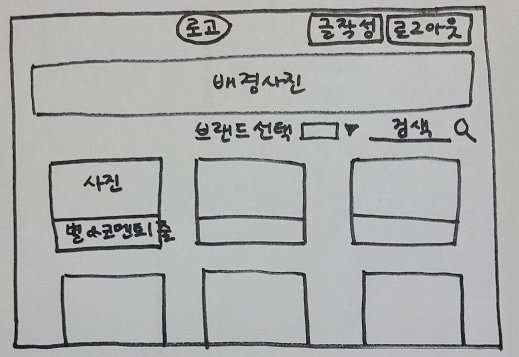 로고 글작성 로그아웃
배경사진
브랜드선택 검색
사진
별☆코멘트1줄